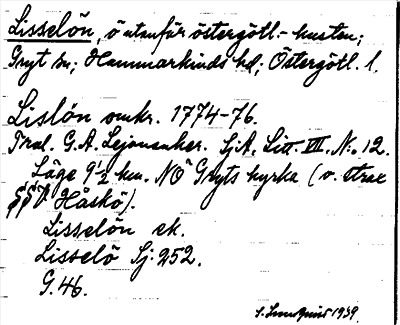 Lisselön, ö utanför östergötl.-kusten;
Gryt sn; Hammarkinds hd; Östergötl. l.
Lislön omkr. 1774-76.
Tral. G.A. Lejonancker. SjA. Litt. VIII. No. 12.
Läge 9½ km. NO Gryts kyrka (v. strax
Håskö).
Lisselön ek.
Lisselö Sj. 252.
G. 46.
S. 1939